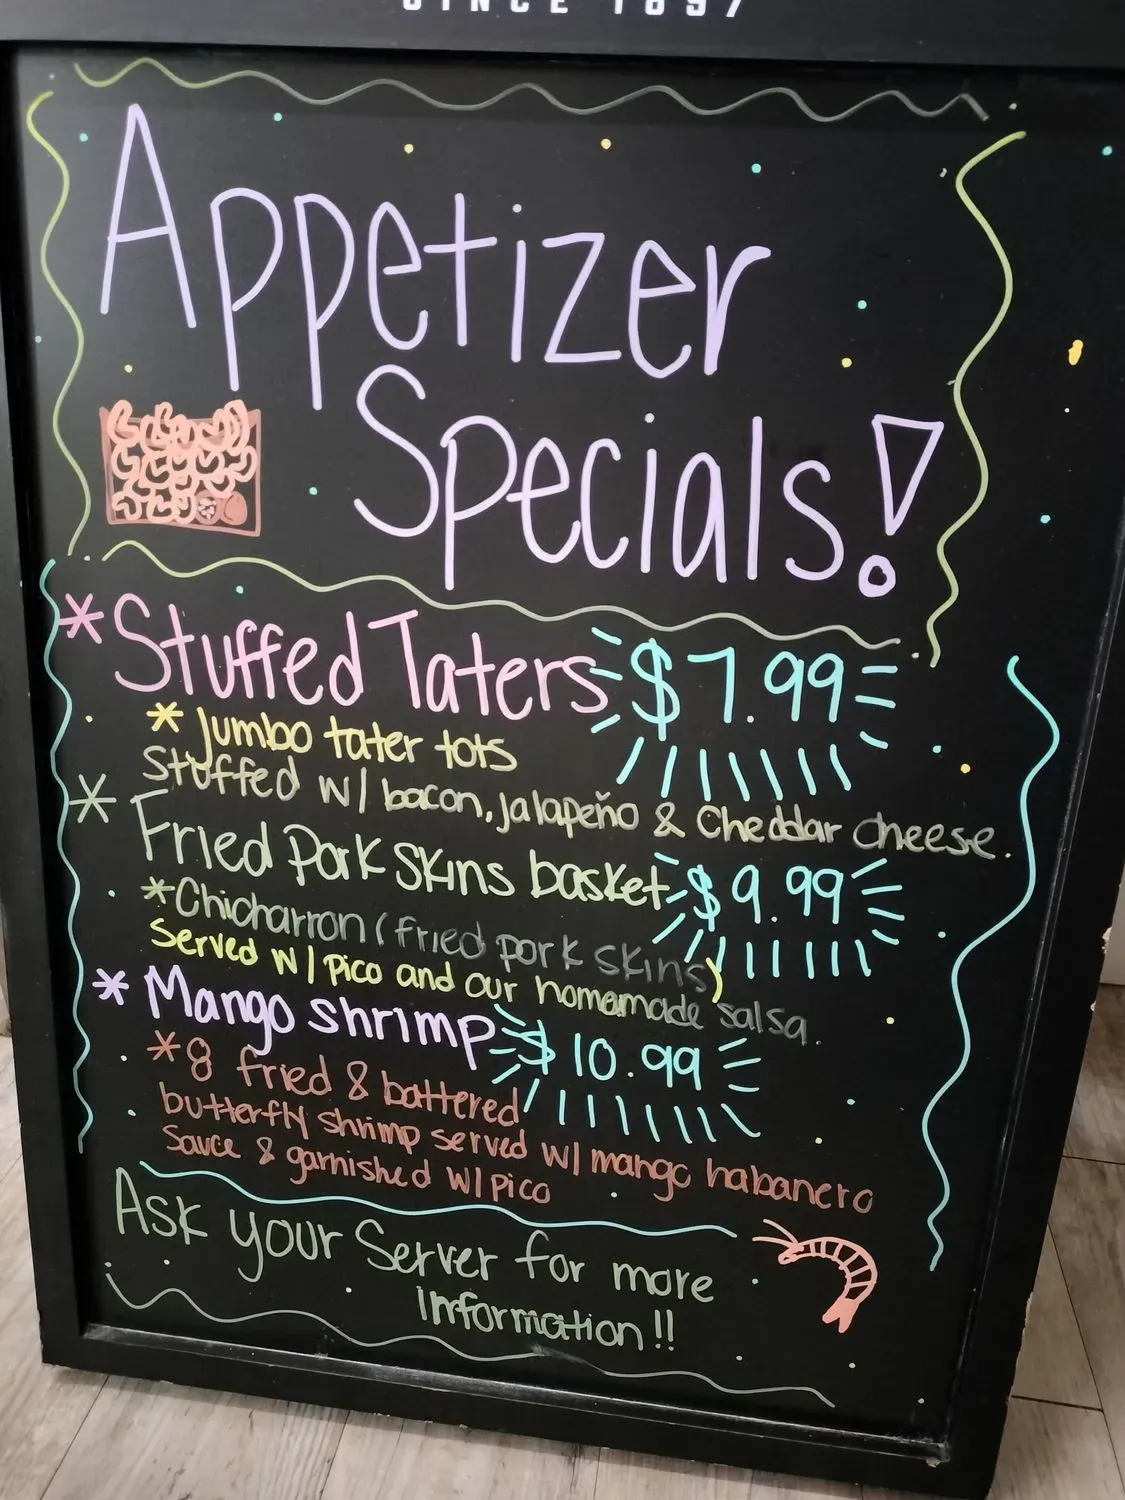 SINCE 1897
Appetizer
Specials!
*Stuffed Taters $7.99
* Jumbo tater tots
Stuffed w/ bacon, jalapeño & Cheddar cheese.
* Fried Pork Skins basket $9.99
*Chicharron (fried pork skins)
Served w/ pico and our homemade salsa.
* Mango shrimp $10.99
*8 fried & battered
butterfly shrimp served w/ mango habanero
Sauce & garnished w/ pico
Ask your Server for more
Information!!